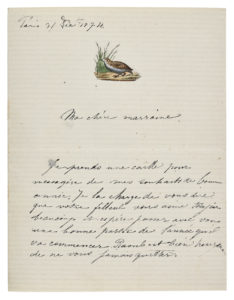 Paris 31 Dec 1874
Ma chère marraine
Je prends une caille pour
messagère de mes souhaits de bonne
année. Je la charge de vous dire
que votre filleul vous aime toujours
beaucoup et espère passer avec vous
une bonne partie de l'année qui
va commencer
de ne vous jamais quitter.